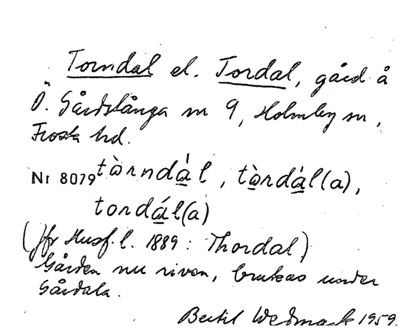 Torndal el. Tordal, gård å
Ö. Gårdstånga nr 9, Holmby sn,
Frosta hd.
Nr 8079 tòrndál, tòrdál(a),
tordál(a)
(Jfr Husf.l. 1889: Thordal)
Gården nu riven, brukas under
Gårdala.
Bertil Wedmark 1959.